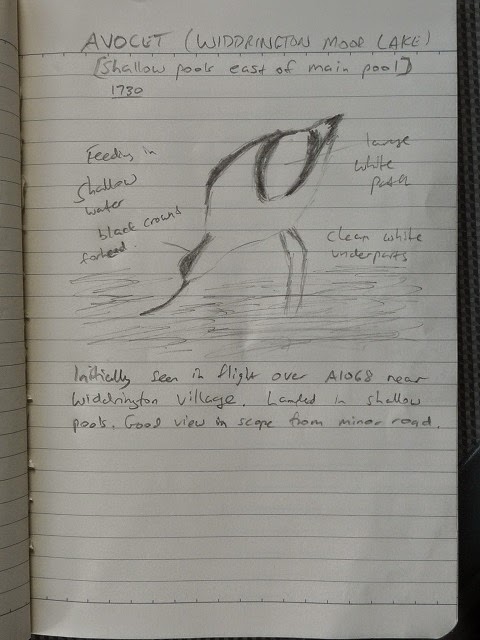 AVOCET (WIDDRINGTON MOOR LAKE)
[Shallow pools east of main pool]
1730
Feeding in
shallow
water
black crown &
forhead.
large
white
patch
clean white
underparts
Initially seen in flight over A1068 near
Widdrington Village. Landed in shallow
pools. Good view in scope from minor road.